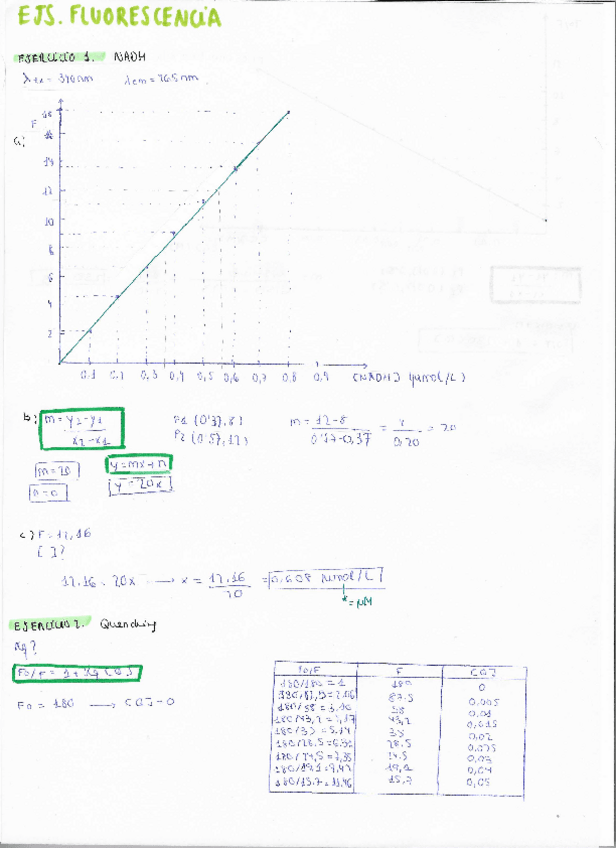 EJS. FLUORESCENCIA
EJERCICIO 1. NADH
F
a)
18
16
14
12
10
8
6
4
2
0.1 0.2 0.3 0,4 0,5 0,6 0,7 0.8 0,9 [NADH] (µmol/L)
b) m = y2-y1 / x2-x1
P1 (0'37, 8)
P2 (0'57, 12)
m = 12-8 / 0'57-0,37 = 4 / 0,20 = 20
m=20 y=mx+n
n=0 y=20x
c) F=12,16
[ ]?
12.16 = 20x → x = 12,16 / 20 = 0,608 µmol/L
* = µM
EJERCICIO 2. Quenching
Kq?
F0/F = 1+Kq[Q]
F0 = 180 → [Q]=0
F0/F F [Q]
180/180 = 1 180 0
180/87,5 = 2.06 87.5 0,005
180/58 = 3.10 58 0,01
180/43,2 = 4,17 43,2 0,015
180/35 = 5.14 35 0,02
180/28.5 = 6.32 28.5 0,025
180/24,5 = 7,35 24.5 0,03
180/19.1 = 9,42 19,1 0,04
180/15.7 = 11,46 15,7 0,05